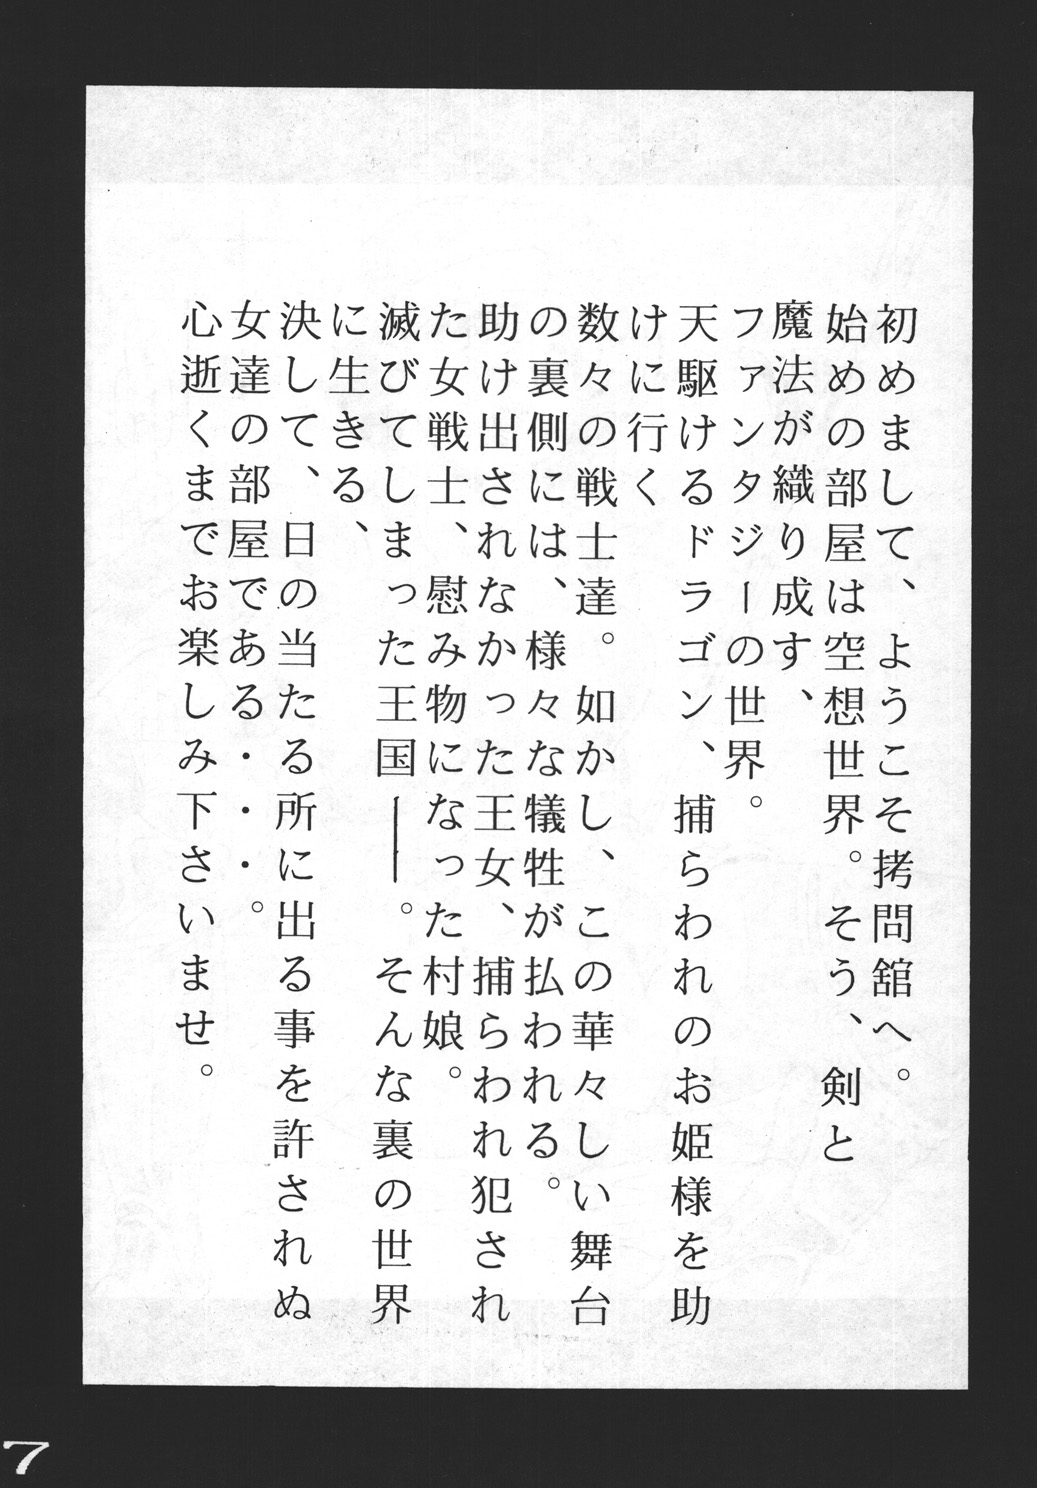 初めまして、ようこそ拷問舘へ。
始めの部屋は空想世界。そう、剣と
魔法が織り成す、
ファンタジーの世界。
天駆けるドラゴン、捕らわれのお姫様を助
けに行く
数々の戦士達。如かし、この華々しい舞台
の裏側には、様々な犠牲が払われる。
助け出されなかった王女、捕らわれ犯され
た女戦士、慰み物になった村娘。
滅びてしまった王国――。そんな裏の世界
に生きる、
決して、日の当たる所に出る事を許されぬ
女達の部屋である・・・。
心逝くまでお楽しみ下さいませ。
7